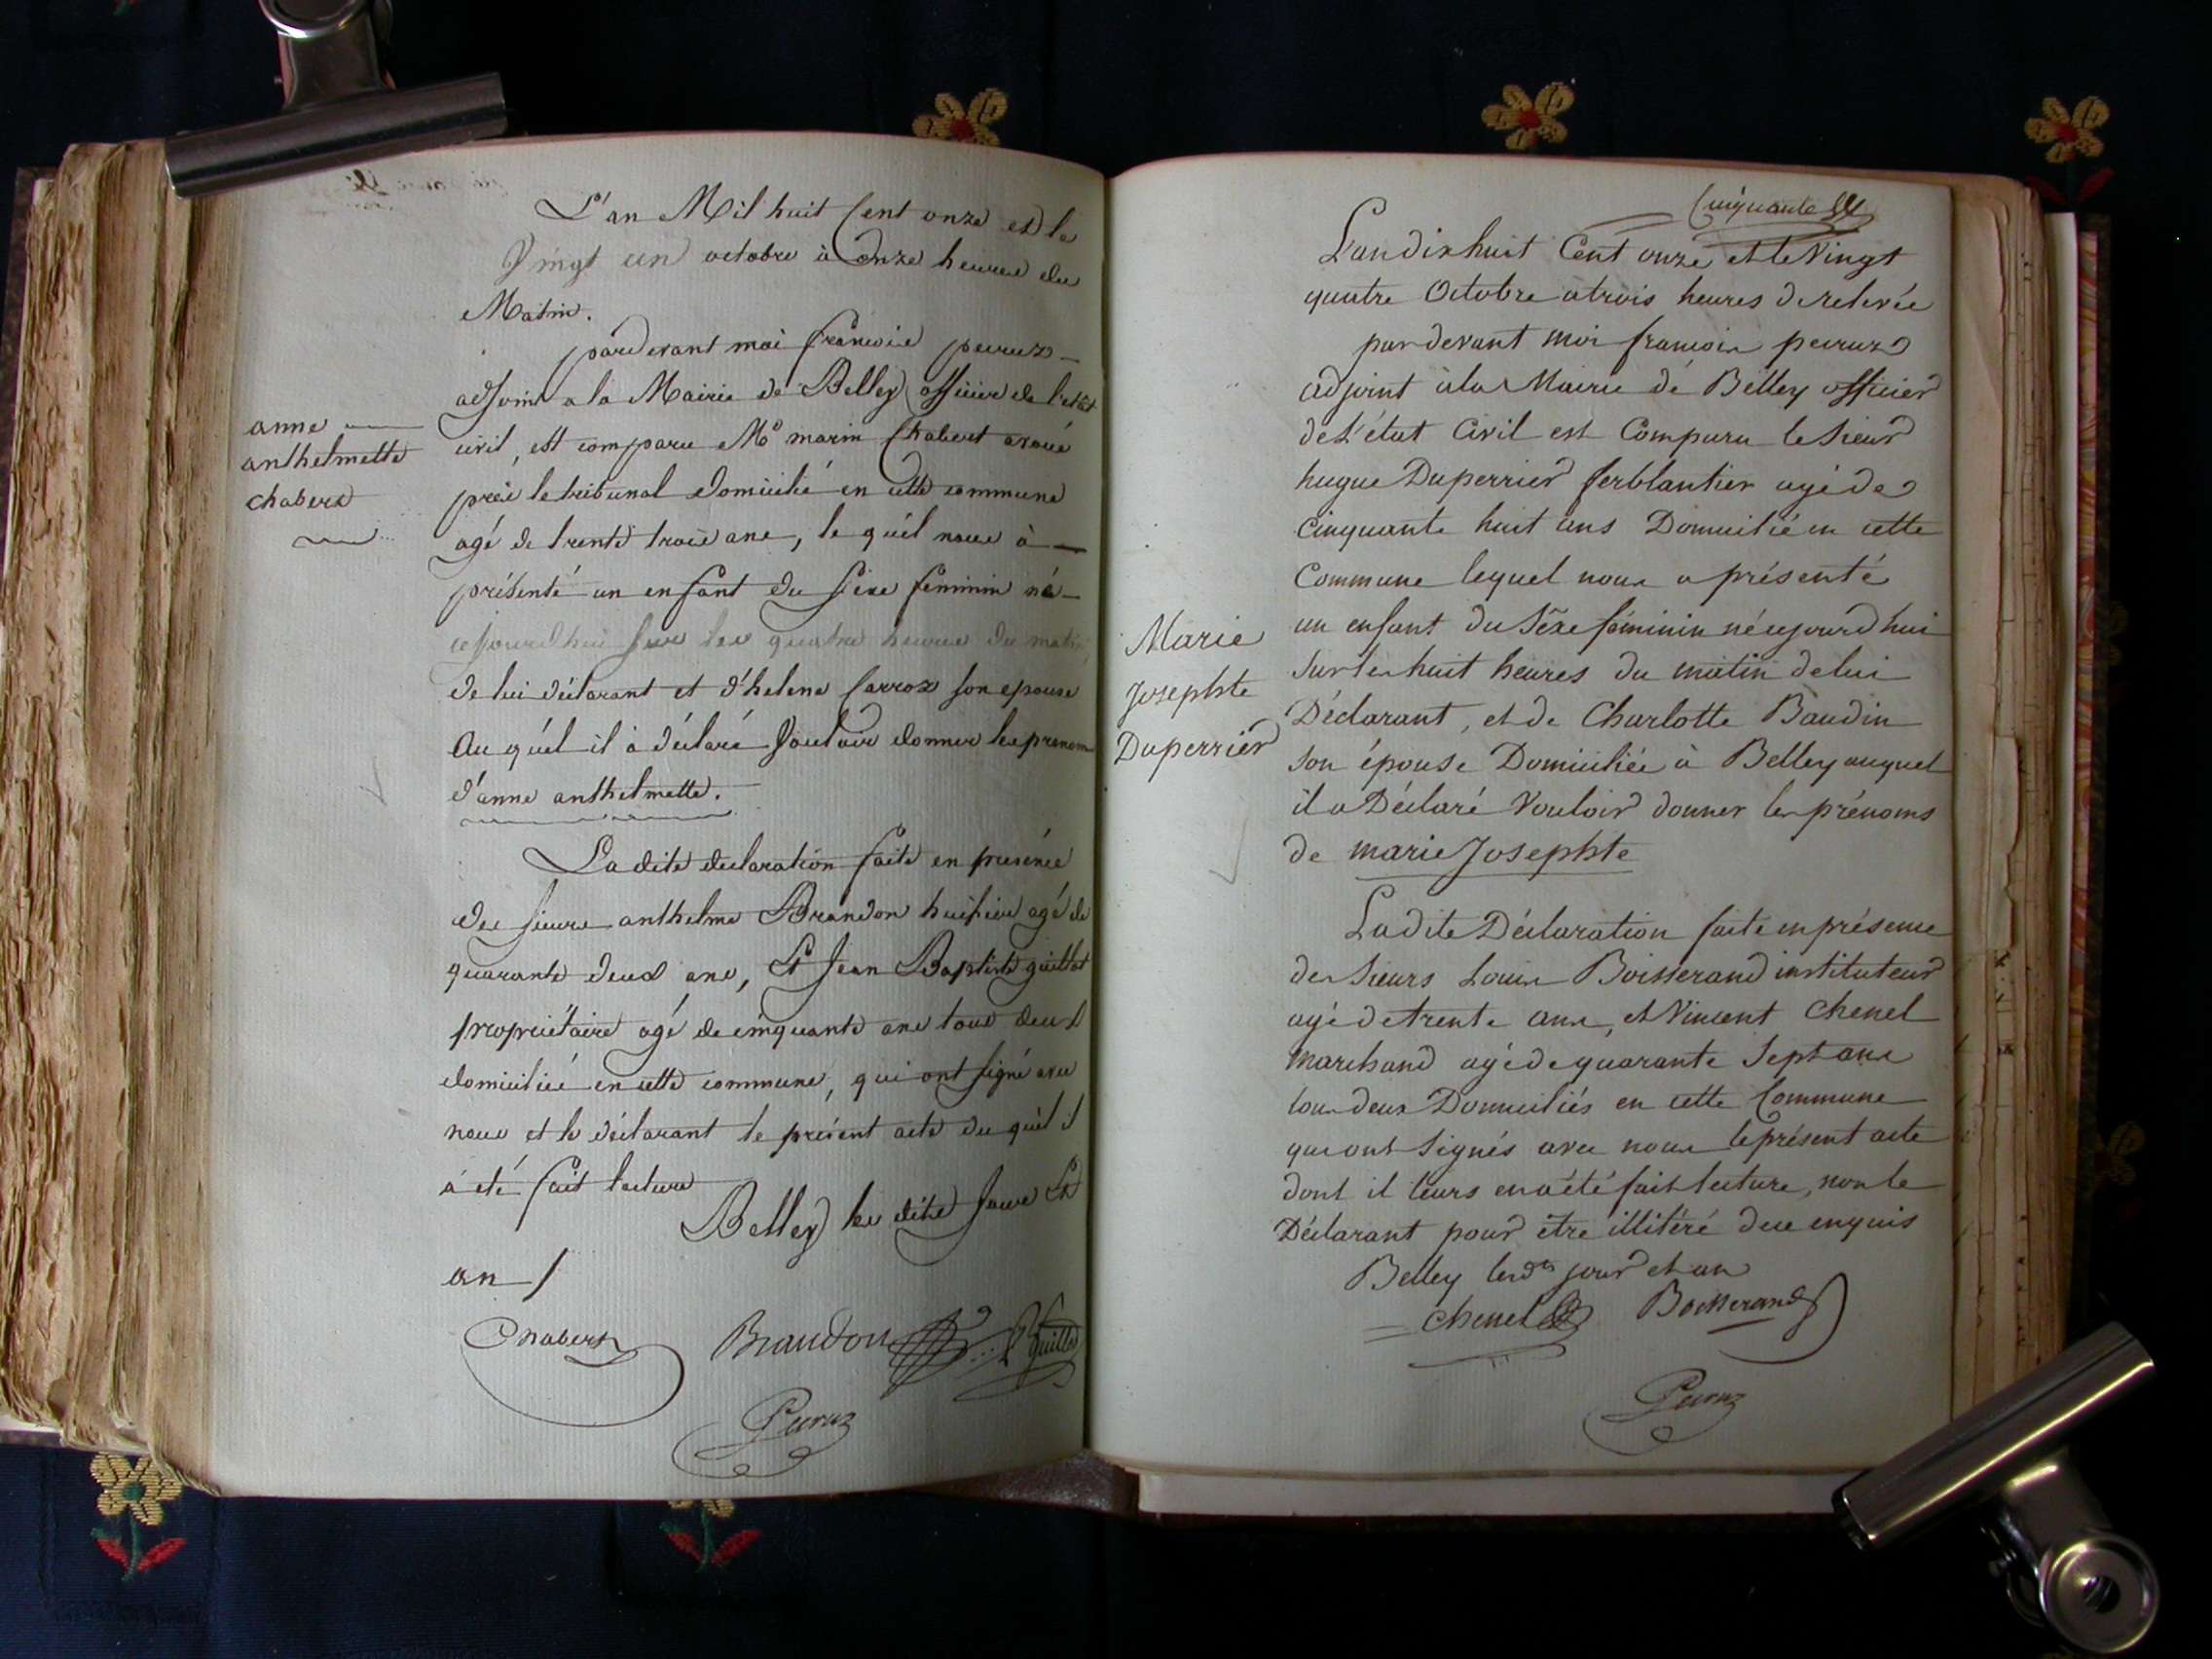 L'an Mil huit Cent onze et le
Vingt un octobre à Onze heures du
Matin.
pardevant moi francois peiruz
adjoint a la Mairie de Belley officier de l'état
civil, est comparu Me marin Chabert avoué
près le tribunal domicilié en cette commune
agé de trente trois ans, le quél nous à
présenté un enfant du sexe feminin né
cejourdhui sur les quatre heures du matin
de lui déclarant et d'helene Carroz son epouse
Au quél il à déclaré Vouloir donner les prenoms
d'anne anthelmette.
anne
anthelmette
chabert
La dite declaration faite en presence
des sieurs anthelme Brandon huissier agé de
quarante deux ans, Et Jean Baptiste guillot
propriétaire agé de cinquante ans tous deux
domiciliés en cette commune, qui ont signé avec
nous et le déclarant le présent acte du quél il
à eté fait lecture
Belley les dits jour Et
an /
Chabert Brandon Guillot
Peiruz
Cinquante
L'an dix huit Cent onze et le Vingt
quatre Octobre a trois heures de relevée
par devant moi francois peiruz
adjoint à la Mairie de Belley officier
de L'état Civil est Comparu le Sieur
hugue Duperrier ferblantier agé de
Cinquante huit ans Domicilié en cette
Commune lequel nous a présenté
un enfant du Séxe féminin né cejourd'hui
sur les huit heures du matin de lui
Déclarant, et de Charlotte Baudin
Son épouse Domiciliée à Belley auquel
il a Déclaré Vouloir donner les prénoms
de marie Josephte
Marie
Josephte
Duperrier
La dite Déclaration faite en présence
des Sieurs Louis Boisserand instituteur
agé de trente ans, et Vincent Chenel
marchand agé de quarante Sept ans
tous deux Domiciliés en cette Commune
qui ont Signés avec nous le présent acte
dont il leurs en a été fait lecture, non le
Déclarant pour être illitéré de ce enquis
Belley lesdts jour et an
Chenel Boisserand
Peiruz